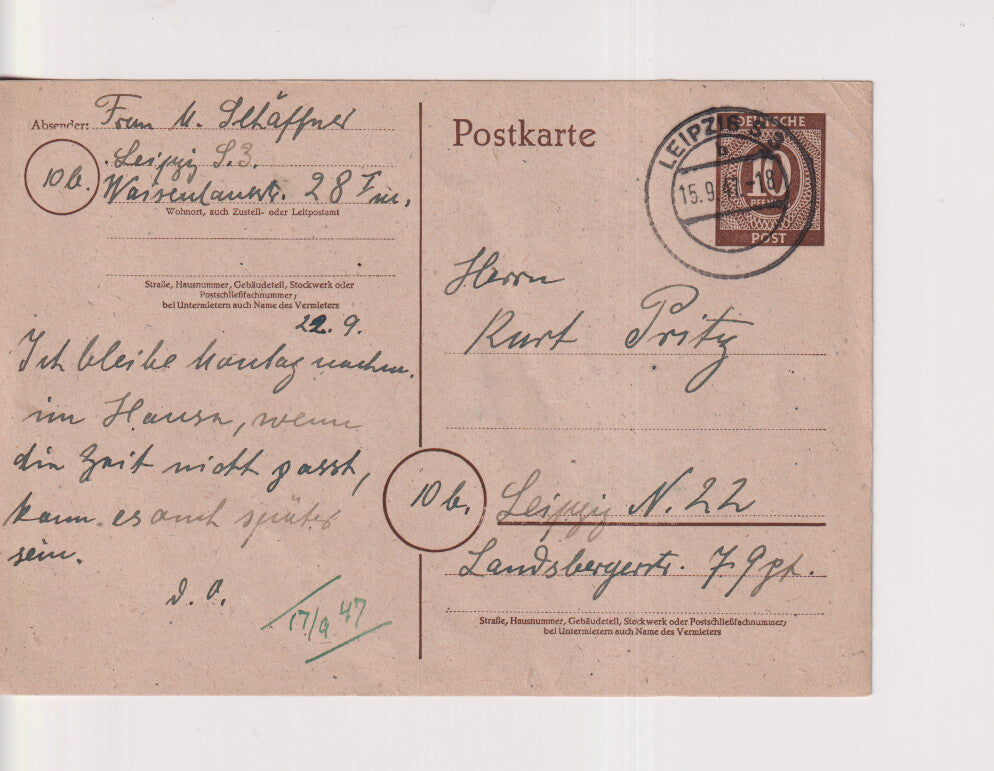 Absender: Frau M. Schäffner
10b.
Leipzig S.3.
28 I m.
Wohnort, auch Zustell- oder Leitpostamt
Straße, Hausnummer, Gebäudeteil, Stockwerk oder
Postschließfachnummer;
bei Untermietern auch Name des Vermieters
22. 9.
Ich bleibe Montag nachm.
im Hause, wenn
die Zeit nicht passt,
kann es auch später
sein.
d. O.
17/9 47
Postkarte
LEIPZIG S 3
b
15.9.47.-18
DEUTSCHE
10
PFENNIG
POST
Herrn
Kurt Pritz
10b.
Leipzig N. 22
Landsbergerstr. 7. 9 pt.
Straße, Hausnummer, Gebäudeteil, Stockwerk oder Postschließfachnummer;
bei Untermietern auch Name des Vermieters